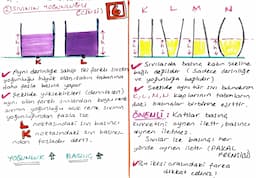 SIVININ YOĞUNLUĞU
(Cinsi)
K L
✓ Aynı derinliğe sahip iki farklı sıvıda
yoğunluğu büyük olan kabın tabanına
daha fazla basınç yapar
✓ Şekilde yükseklikleri (derinlikleri)
aynı olan
yoğunluğundan fazla ise
K noktasındaki sıvı basıncı
L noktasındaki sıvı basıncından
fazladır deriz.
YOĞUNLUK ↑ BASINÇ ↑
K L M N
✓ Sıvılarda basınç kabın şekline
bağlı değildir. (Sadece derinliğe
ve yoğunluğa bağlıdır)
✓ Şekilde aynı tür sıvı bulunan
K, L, M, N kaplarının tabanındaki
basınçlar birbirine eşittir.
ÖNEMLİ: Katılar basınç
kuvvetini aynen iletir, basıncı
aynen iletmez.
Sıvılar ise basıncı her
yönde aynen iletir (PASKAL
PRENSİBİ)
✓ Bu ikisi arasındaki farka
dikkat edin!